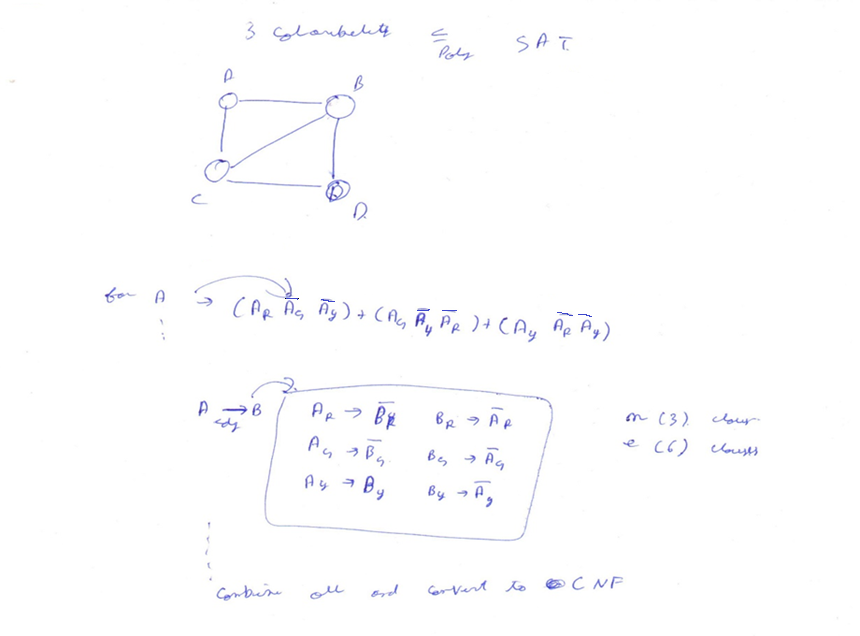 3 colorability ≤ Poly SAT.
A
B
C
D
D.
for A → (A_R A̅_G A̅_y) + (A_G A̅_y A̅_R) + (A_y A̅_R A̅_y)
A → B
edg
2.
A_R → B̅_R B_R → A̅_R
A_G → B̅_G B_G → A̅_G
A_y → B_y B_y → A̅_y
n (3)
e (6)
Combine all and convert to CNF